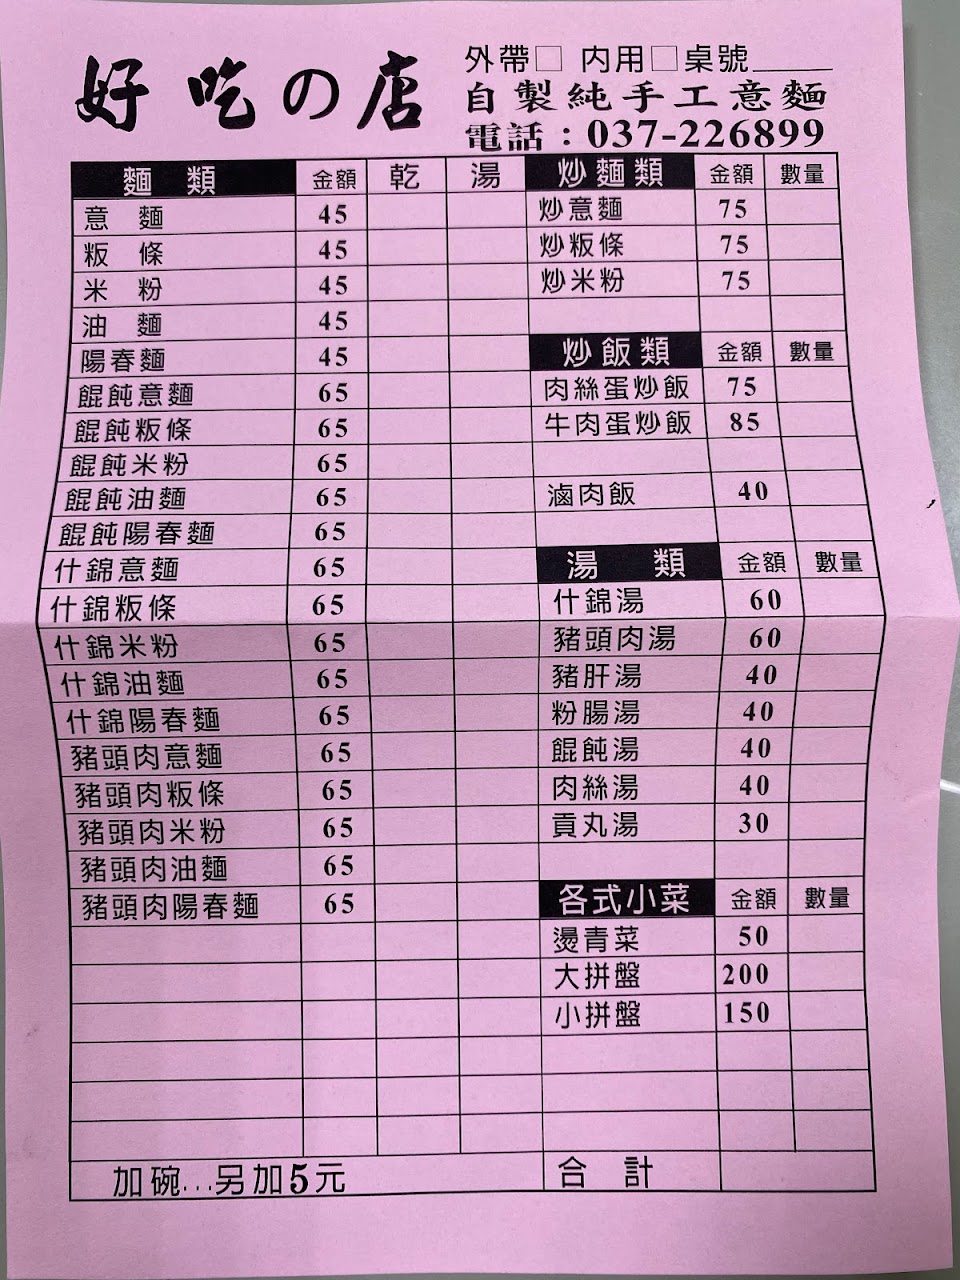 好吃の店
外帶□ 內用□桌號____
自製純手工意麵
電話：037-226899
麵類 金額 乾 湯
意麵 45
粄條 45
米粉 45
油麵 45
陽春麵 45
餛飩意麵 65
餛飩粄條 65
餛飩米粉 65
餛飩油麵 65
餛飩陽春麵 65
什錦意麵 65
什錦粄條 65
什錦米粉 65
什錦油麵 65
什錦陽春麵 65
豬頭肉意麵 65
豬頭肉粄條 65
豬頭肉米粉 65
豬頭肉油麵 65
豬頭肉陽春麵 65
加碗...另加5元
炒麵類 金額 數量
炒意麵 75
炒粄條 75
炒米粉 75
炒飯類 金額 數量
肉絲蛋炒飯 75
牛肉蛋炒飯 85
滷肉飯 40
湯類 金額 數量
什錦湯 60
豬頭肉湯 60
豬肝湯 40
粉腸湯 40
餛飩湯 40
肉絲湯 40
貢丸湯 30
各式小菜 金額 數量
燙青菜 50
大拼盤 200
小拼盤 150
合計